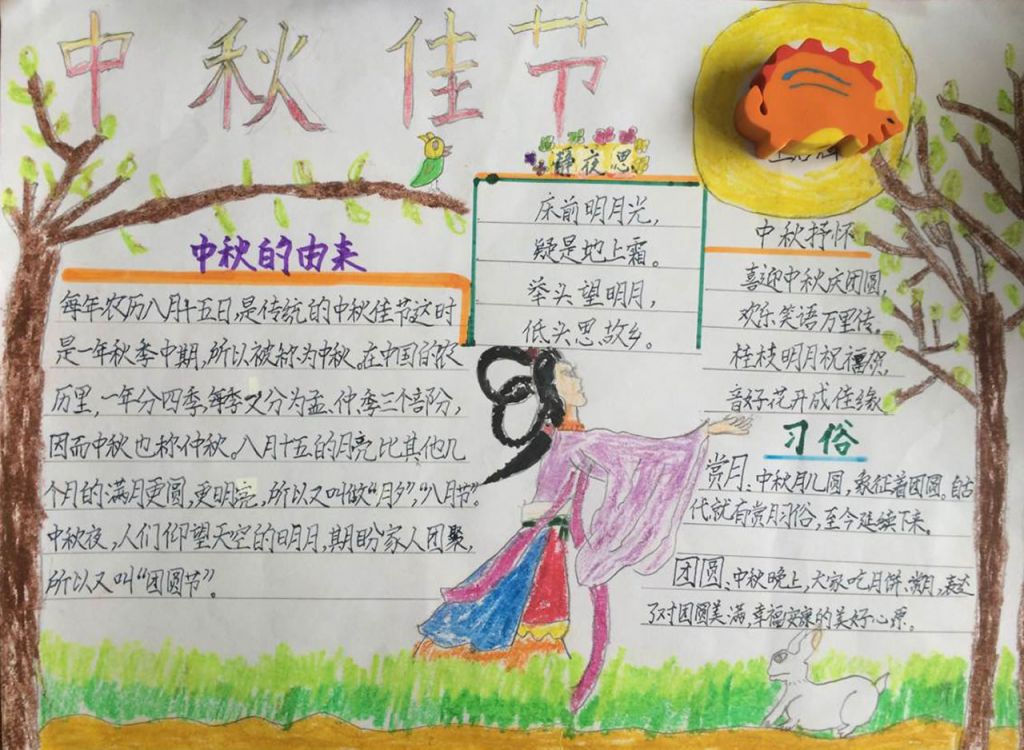 中秋佳节
中秋的由来
每年农历八月十五日,是传统的中秋佳节这时
是一年秋季中期,所以被称为中秋。在中国的农
历里,一年分四季,每季又分为孟、仲、季三个部分,
因而中秋也称仲秋。八月十五的月亮比其他几
个月的满月更圆,更明亮,所以又叫做“月夕”,“八月节”。
中秋夜,人们仰望天空的明月,期盼家人团聚,
所以又叫“团圆节”。
静夜思
床前明月光,
疑是地上霜。
举头望明月,
低头思故乡。
中秋抒怀
喜迎中秋庆团圆,
欢乐笑语万里传。
桂枝明月祝福你,
音好花开成佳缘
习俗
赏月:中秋月儿圆,象征着团圆。自古
代就有赏月习俗,至今延续下来。
团圆:中秋晚上,大家吃月饼、赏月,表达
了对团圆美满,幸福安康的美好心愿。